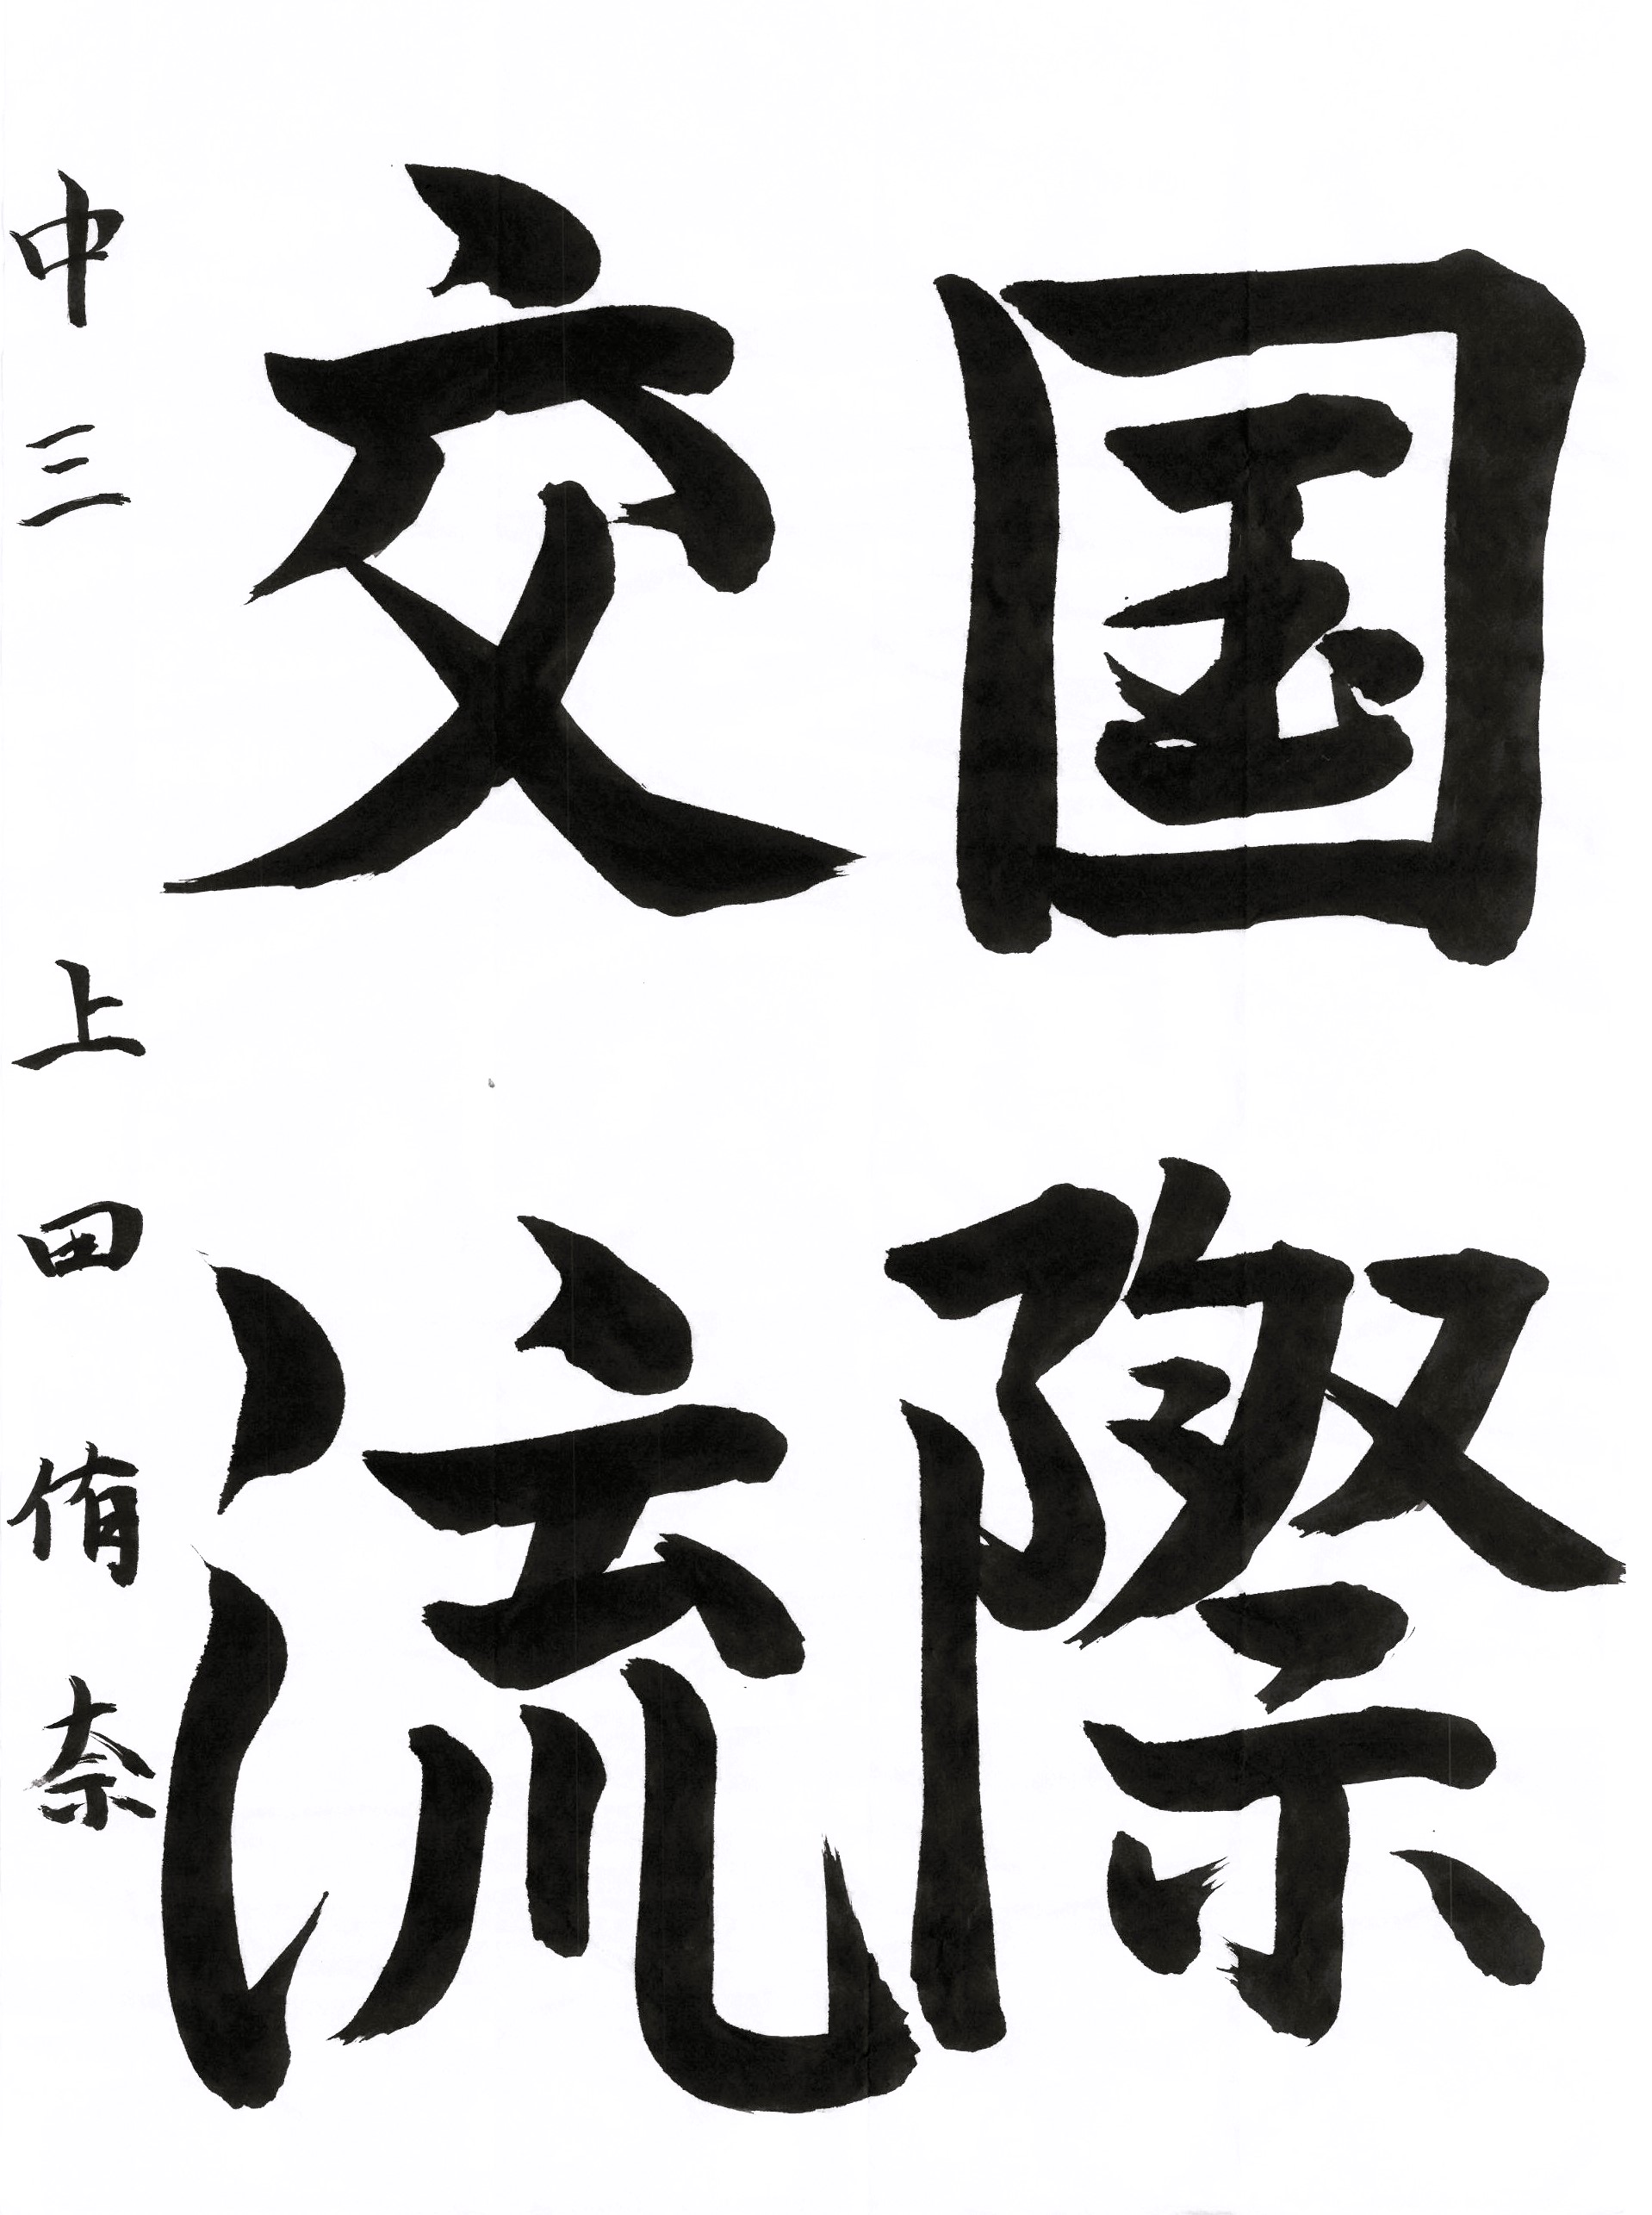 国際
交流
中三 上田侑奈